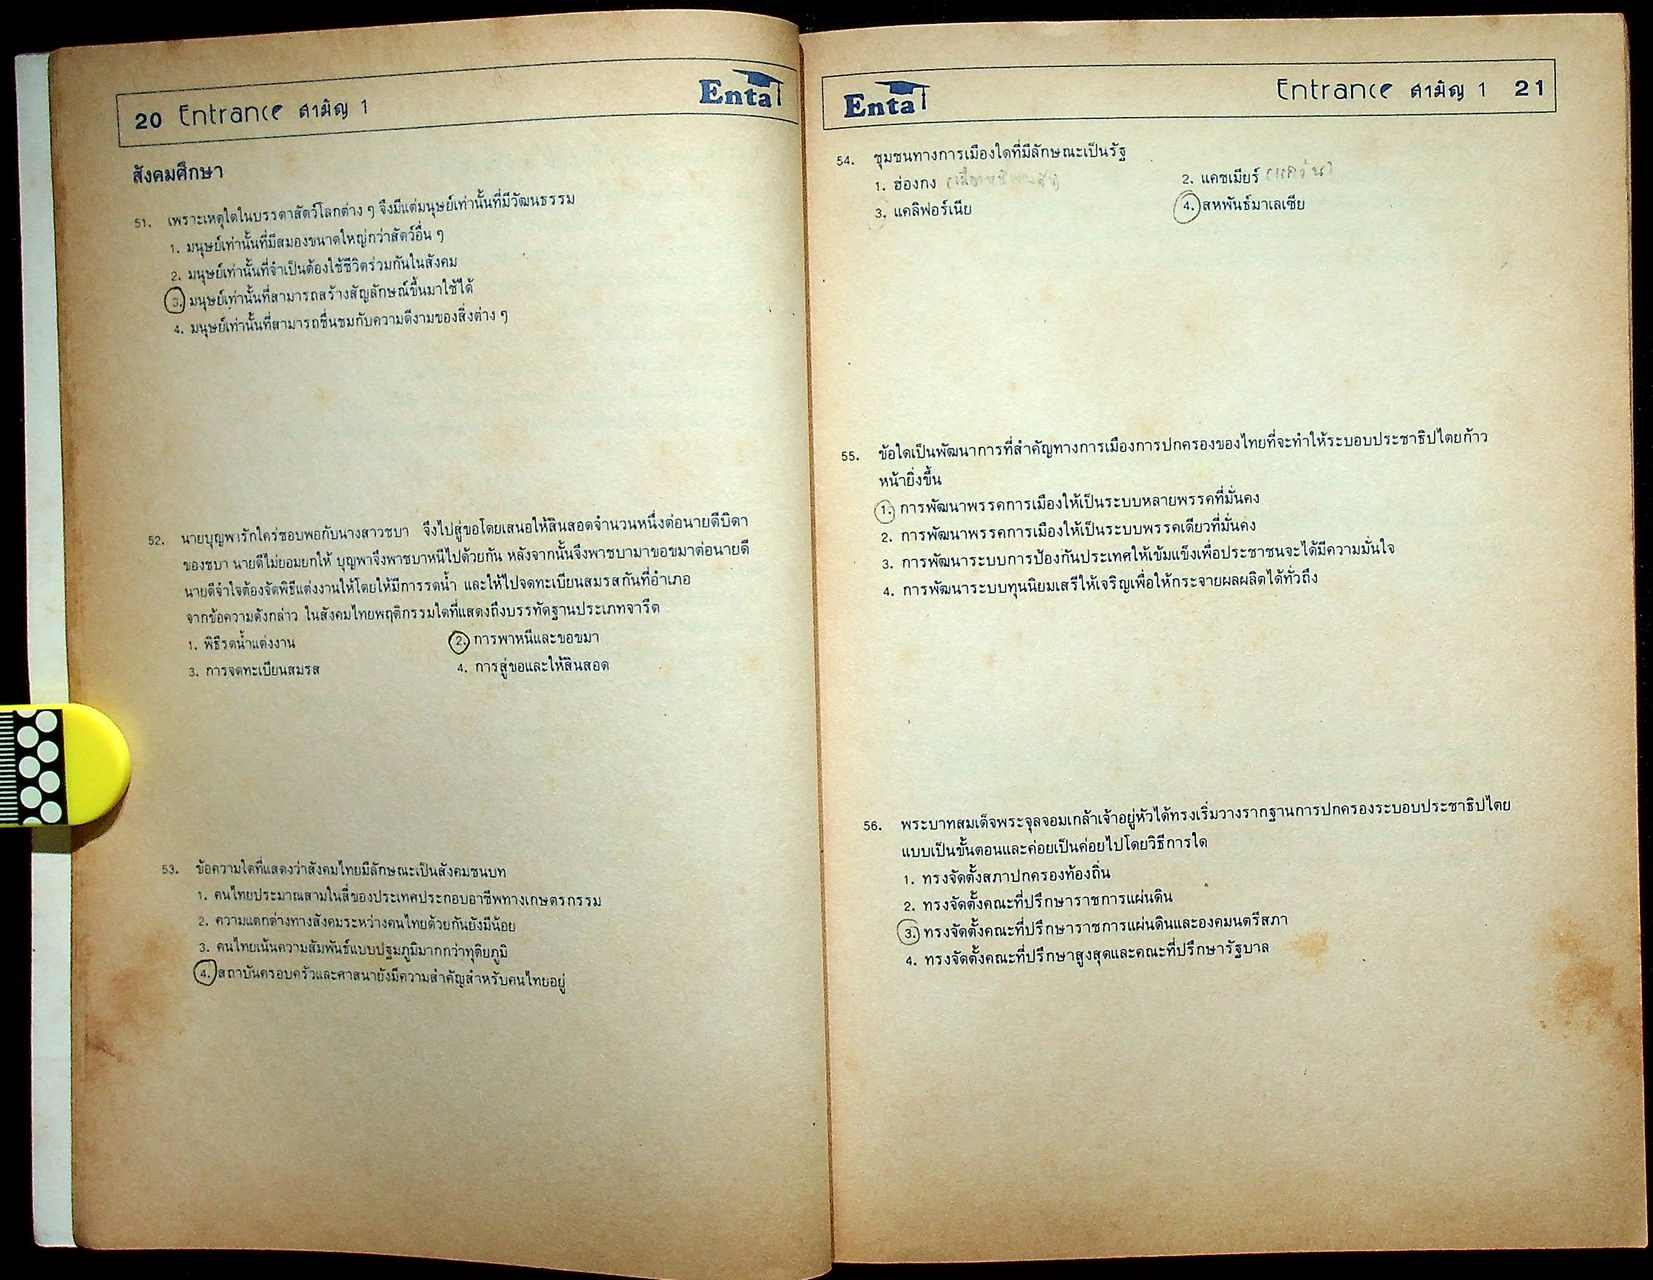 20 Entrance สามัญ 1
Enta
สังคมศึกษา
51. เพราะเหตุใดในบรรดาสัตว์โลกต่าง ๆ จึงมีแต่มนุษย์เท่านั้นที่มีวัฒนธรรม
1. มนุษย์เท่านั้นที่มีสมองขนาดใหญ่กว่าสัตว์อื่น ๆ
2. มนุษย์เท่านั้นที่จำเป็นต้องใช้ชีวิตร่วมกันในสังคม
3. มนุษย์เท่านั้นที่สามารถสร้างสัญลักษณ์ขึ้นมาใช้ได้
4. มนุษย์เท่านั้นที่สามารถชื่นชมกับความดีงามของสิ่งต่าง ๆ
52. นายบุญพารักใคร่ชอบพอกับนางสาวชบา จึงไปสู่ขอโดยเสนอให้สินสอดจำนวนหนึ่งต่อนายดีบิดา
ของชบา นายดีไม่ยอมยกให้ บุญพาจึงพาชบาหนีไปด้วยกัน หลังจากนั้นจึงพาชบามาขอขมาต่อนายดี
นายดีจำใจต้องจัดพิธีแต่งงานให้โดยให้มีการรดน้ำ และให้ไปจดทะเบียนสมรสกันที่อำเภอ
จากข้อความดังกล่าว ในสังคมไทยพฤติกรรมใดที่แสดงถึงบรรทัดฐานประเภทจารีต
1. พิธีรดน้ำแต่งงาน 2. การพาหนีและขอขมา
3. การจดทะเบียนสมรส 4. การสู่ขอและให้สินสอด
53. ข้อความใดที่แสดงว่าสังคมไทยมีลักษณะเป็นสังคมชนบท
1. คนไทยประมาณสามในสี่ของประเทศประกอบอาชีพทางเกษตรกรรม
2. ความแตกต่างทางสังคมระหว่างคนไทยด้วยกันยังมีน้อย
3. คนไทยเน้นความสัมพันธ์แบบปฐมภูมิมากกว่าทุติยภูมิ
4. สถาบันครอบครัวและศาสนายังมีความสำคัญสำหรับคนไทยอยู่
Enta
Entrance สามัญ 1 21
54. ชุมชนทางการเมืองใดที่มีลักษณะเป็นรัฐ
1. ฮ่องกง 2. แคชเมียร์
3. แคลิฟอร์เนีย 4. สหพันธ์มาเลเซีย
55. ข้อใดเป็นพัฒนาการที่สำคัญทางการเมืองการปกครองของไทยที่จะทำให้ระบอบประชาธิปไตยก้าว
หน้ายิ่งขึ้น
1. การพัฒนาพรรคการเมืองให้เป็นระบบหลายพรรคที่มั่นคง
2. การพัฒนาพรรคการเมืองให้เป็นระบบพรรคเดียวที่มั่นคง
3. การพัฒนาระบบการป้องกันประเทศให้เข้มแข็งเพื่อประชาชนจะได้มีความมั่นใจ
4. การพัฒนาระบบทุนนิยมเสรีให้เจริญเพื่อให้กระจายผลผลิตได้ทั่วถึง
56. พระบาทสมเด็จพระจุลจอมเกล้าเจ้าอยู่หัวได้ทรงเริ่มวางรากฐานการปกครองระบอบประชาธิปไตย
แบบเป็นขั้นตอนและค่อยเป็นค่อยไปโดยวิธีการใด
1. ทรงจัดตั้งสภาปกครองท้องถิ่น
2. ทรงจัดตั้งคณะที่ปรึกษาราชการแผ่นดิน
3. ทรงจัดตั้งคณะที่ปรึกษาราชการแผ่นดินและองคมนตรีสภา
4. ทรงจัดตั้งคณะที่ปรึกษาสูงสุดและคณะที่ปรึกษารัฐบาล